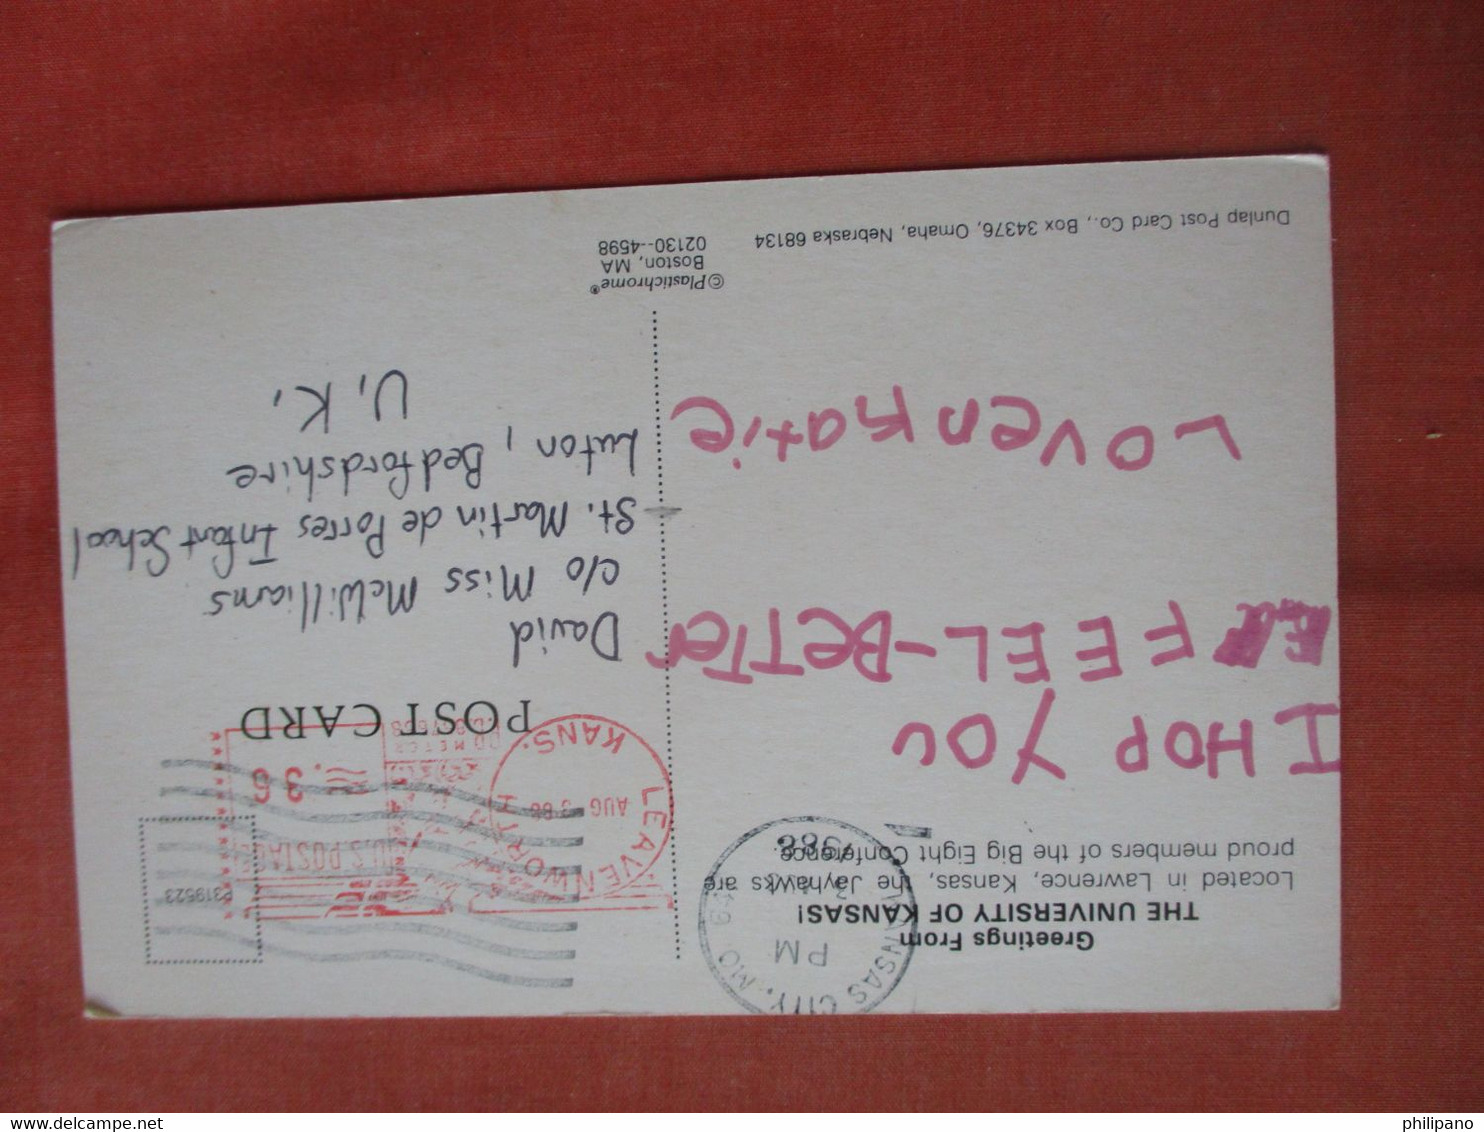 Greetings From
THE UNIVERSITY OF KANSAS!
Located in Lawrence, Kansas, the Jayhawks are
proud members of the Big Eight Conference.
I HOP YOU
FEEL-BETTer
Loven Katie
Dunlap Post Card Co., Box 34376, Omaha, Nebraska 68134
©Plastichrome®
Boston, MA
02130--4598
KANSAS CITY, MO
PM
1988
LEAVENWORTH
KANS.
AUG
U.S. POSTAGE
.36
P319523
POST CARD
David
c/o Miss McWilliams
St. Martin de Porres Infant School
Luton, Bedfordshire
U.K.
philipano